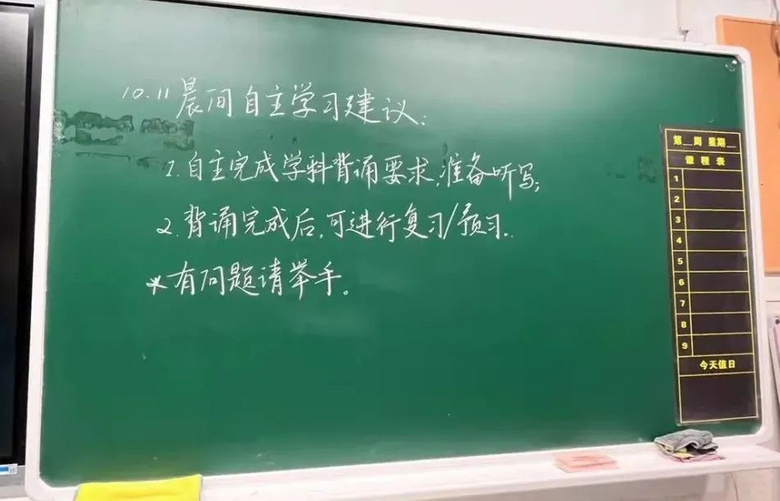 10.11晨间自主学习建议：
1.自主完成学科背诵要求，准备听写；
2.背诵完成后，可进行复习/预习.
*有问题请举手。
第 周 星期
课程表
1
2
3
4
5
6
7
8
9
今天值日